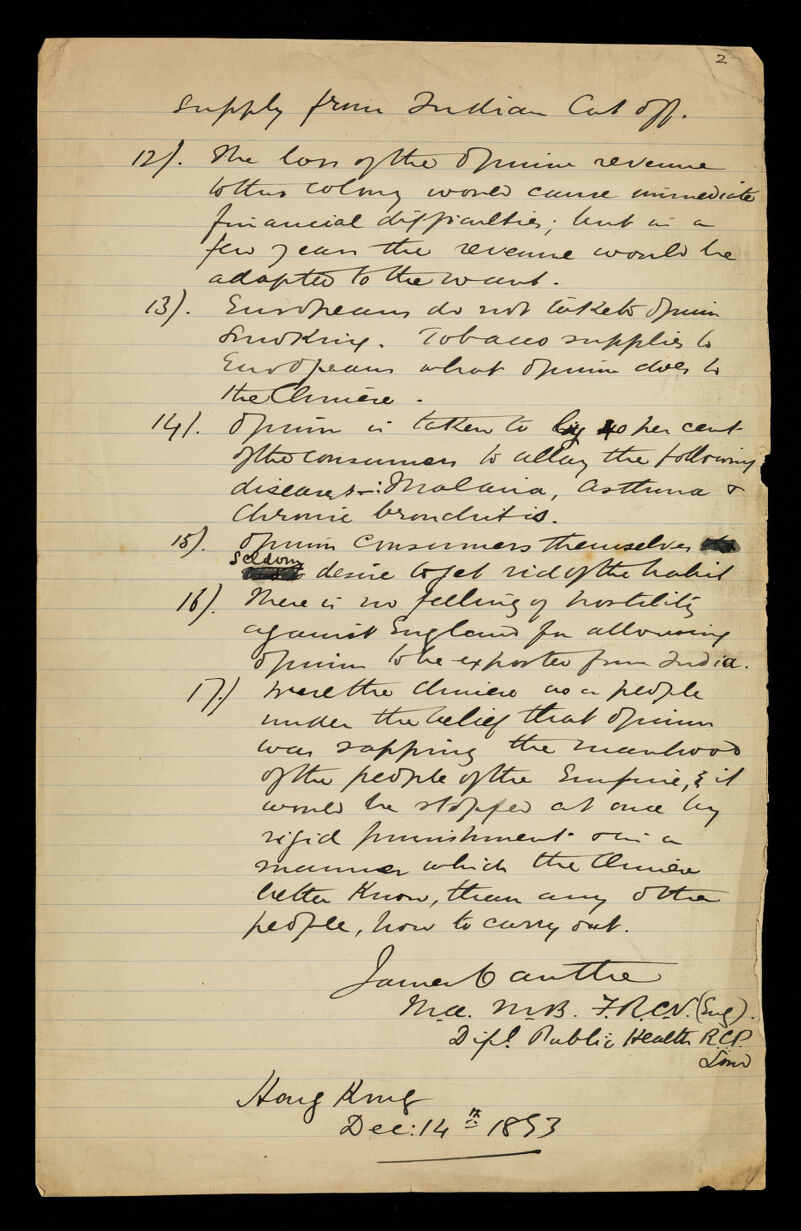 2
supply from Indian Cut off.
12). The loss of the Opium revenue
to this colony would cause immediate
financial difficulties; but in a
few years the revenue would be
adapted to the want.
13). Europeans do not take to Opium
Smoking. Tobacco supplies to
Europeans what Opium does to
the Chinese.
14). Opium is taken to by 40 per cent
of the consumers to allay the following
diseases:- Malaria, asthma &
Chronic bronchitis.
15). Opium Consumers themselves
seldom
desire to get rid of the habit
16). There is no feeling of hostility
against England for allowing
Opium to be exported from India.
17.) Were the Chinese as a people
under the belief that Opium
was sapping the manhood
of the people of the Empire, & it
would be stopped at once by
rigid punishment & in a
manner which the Chinese
better Know, than any other
people, how to carry out.
James Cantlie
M.A. M.B. F.R.C.S. (Eng).
Dipl. Public Health R.C.P.
Lond
Hong Kong
Dec: 14th 1893